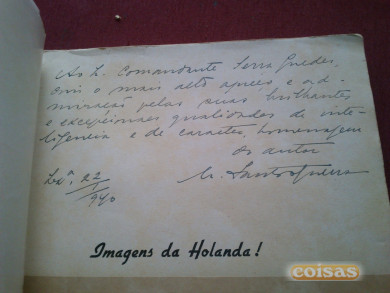 Ao L. Comandante Serra Guedes,
com o mais alto apreço e ad-
miração pelas suas brilhantes
e excepcionaes qualidades de inte-
ligencia e de caracter, homenagem
do autor
Lxª. 22
940
M. Santos Guerra
Imagens da Holanda!
coisas